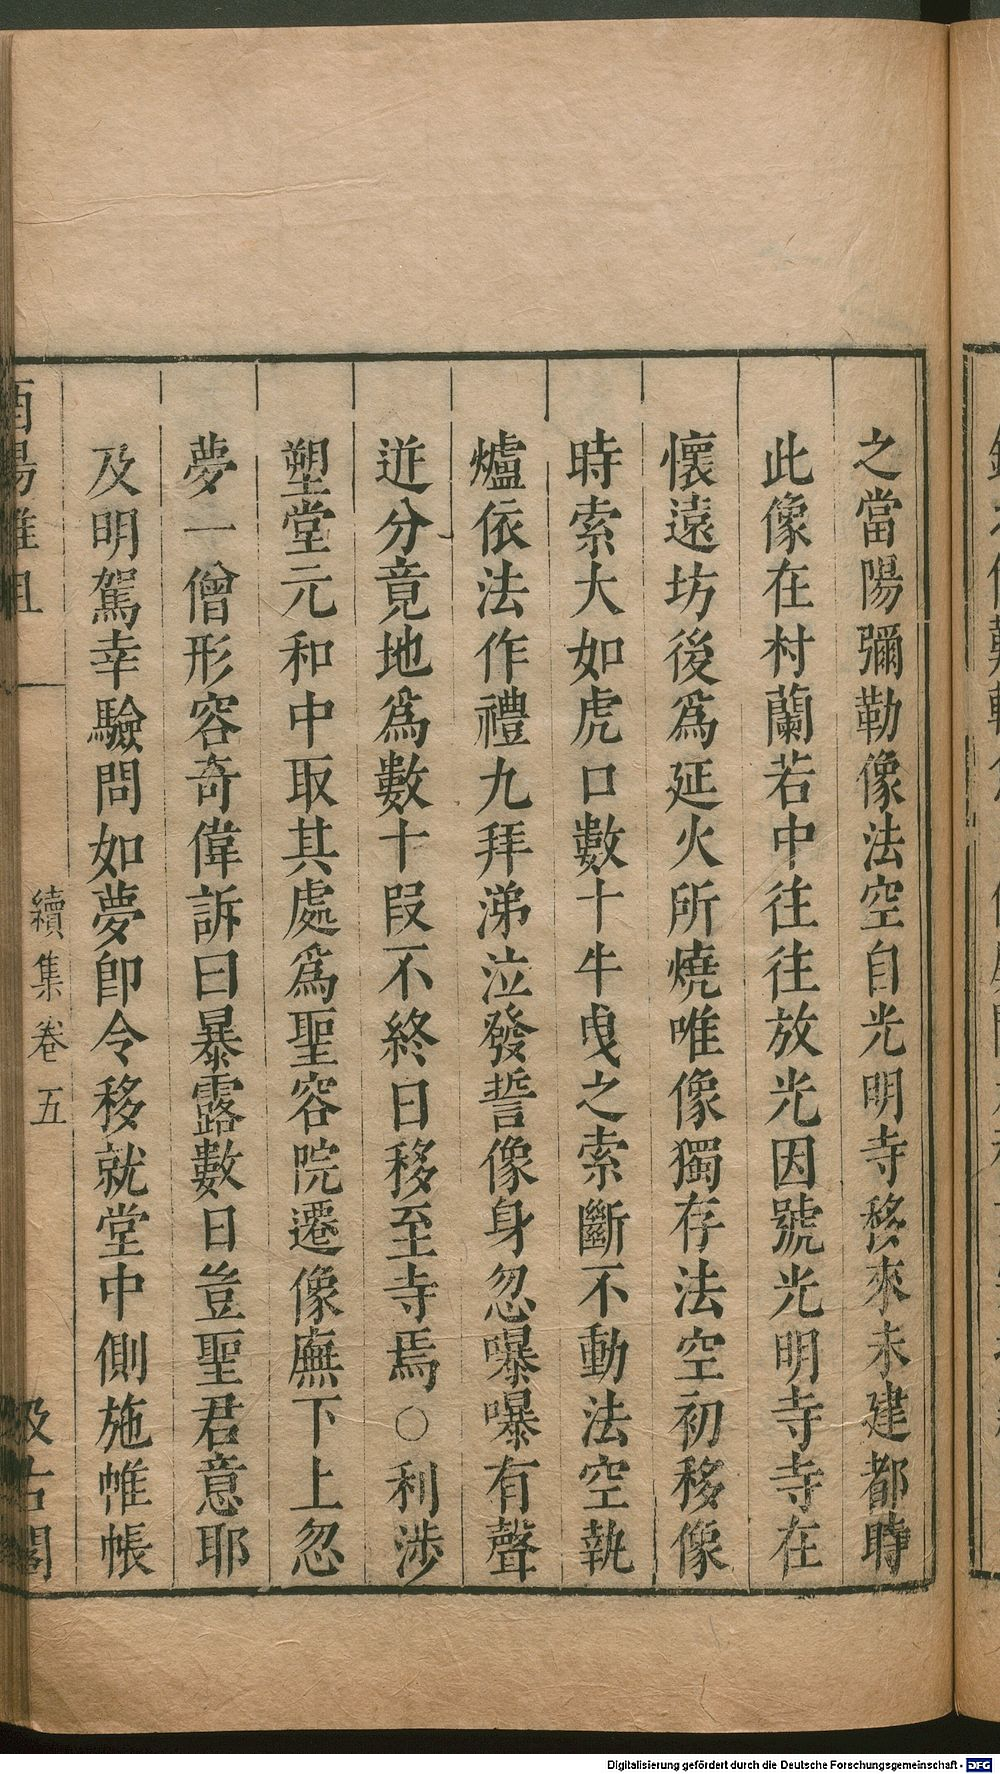 之當陽彌勒像法空自光明寺移來未建都時
此像在村蘭若中往往放光因號光明寺寺在
懷遠坊後爲延火所燒唯像獨存法空初移像
時索大如虎口數十牛曳之索斷不動法空執
爐依法作禮九拜涕泣發誓像身忽曝曝有聲
迸分竟地爲數十段不終日移至寺焉○利涉
塑堂元和中取其處爲聖容院遷像廡下上忽
夢一僧形容奇偉訴曰暴露數日豈聖君意耶
及明駕幸驗問如夢即令移就堂中側施帷帳
酉陽雜俎
續集卷五
汲古閣
Digitalisierung gefördert durch die Deutsche Forschungsgemeinschaft - DFG